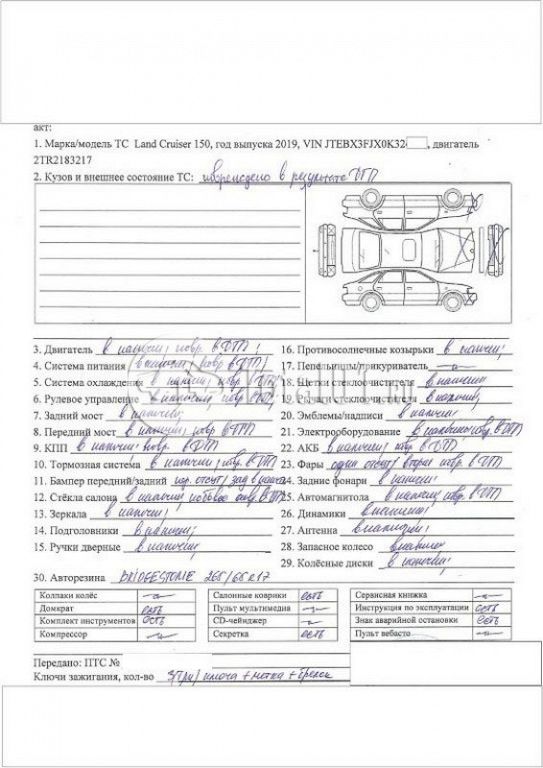 акт:
1. Марка/модель ТС Land Cruiser 150, год выпуска 2019, VIN JTEBX3FJX0K32 , двигатель
2TR2183217
2. Кузов и внешнее состояние ТС: повреждено в результате ДТП
3. Двигатель в наличии, повр. в ДТП;
4. Система питания в наличии, повр в ДТП;
5. Система охлаждения в наличии, повр. в ДТП;
6. Рулевое управление в наличии, повр. в ДТП;
7. Задний мост в наличии;
8. Передний мост в наличии, повр. в ДТП
9. КПП в наличии повр. в ДТП
10. Тормозная система в наличии, повр. в ДТП
11. Бампер передний/задний пер. отсут / зад в налич
12. Стёкла салона в наличии лобовое повр. в ДТП
13. Зеркала в наличии;
14. Подголовники в наличии;
15. Ручки дверные в наличии;
16. Противосолнечные козырьки в наличии;
17. Пепельницы/прикуриватель
18. Щетки стеклоочистителя в наличии
19. Рычаги стеклоочист. в наличии;
20. Эмблемы/надписи в наличии;
21. Электрооборудование в наличии повр. в ДТП
22. АКБ в наличии, повр. в ДТП
23. Фары один отсут / вторая повр. в ДТП
24. Задние фонари в наличии;
25. Автомагнитола в наличии, повр. в ДТП
26. Динамики в наличии;
27. Антенна в наличии;
28. Запасное колесо в наличии
29. Колёсные диски в наличии;
30. Авторезина BRIDGESTONE 265/65 R17
Колпаки колёс —
Домкрат есть
Комплект инструментов есть
Компрессор —
Салонные коврики есть
Пульт мультимедиа —
CD-чейнджер —
Секретка есть
Сервисная книжка —
Инструкция по эксплуатации есть
Знак аварийной остановки есть
Пульт вебасто —
Передано: ПТС №
Ключи зажигания, кол-во 3(три) ключа + метка + брелок